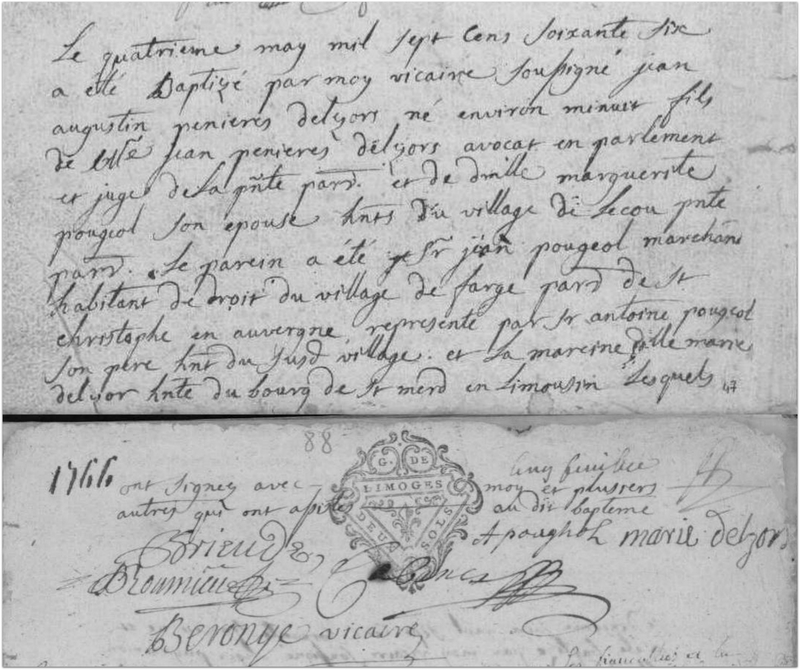 Le quatrieme may mil sept Cens Soixante Six
a été Baptizé par moy vicaire soussigné jean
augustin penieres delzors né environ minuit fils
de jean penieres delzors avocat en parlement
et juge de la pñte parr. et de dmlle marguerite
pougeol son epouse hñts du village de Lecou pñte
parr. Le parein a été Sr jean pougeol marchand
habitant de droit du village de farge parr de st
christophe en auvergne represente par Sr antoine pougeol
son pere hñt du susd village. et la mareine dlle marie
delzor hñte du bourg de st merd en Limousin Lesquels
88
1766
G. DE
LIMOGES
DEUX SOLS
ont signez avec moy et plusiers
autres qui ont assistes au dit bapteme
A poughol marie delzors
Brieude
Beronye vicaire